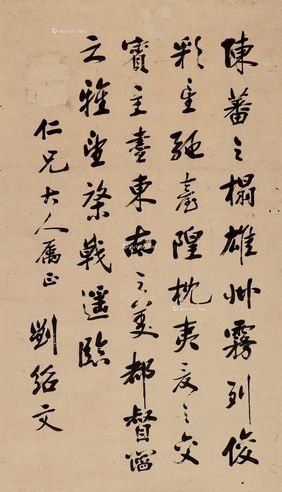 陳蕃之榻雄州霧列俊
彩星馳臺隍枕夷夏之交
賓主盡東南之美都督閻
公雅望棨戟遥臨
仁兄大人屬正
劉紹文